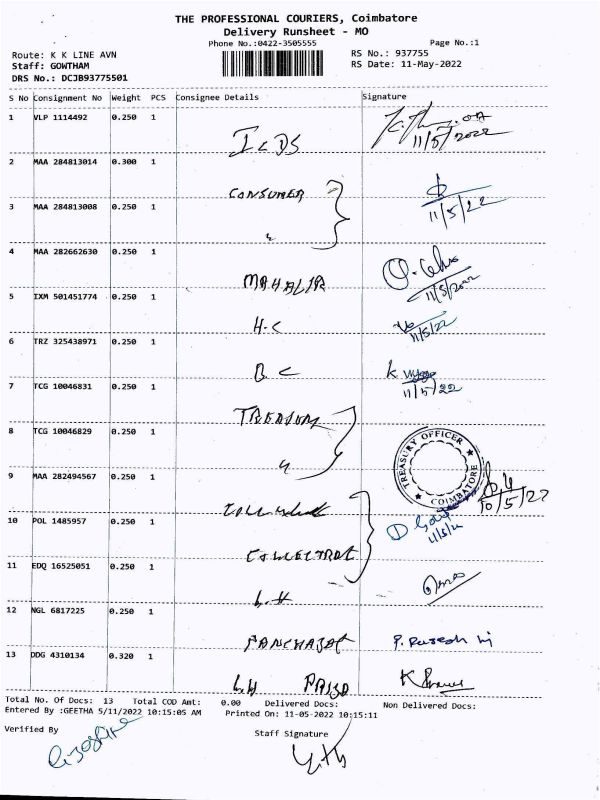 THE PROFESSIONAL COURIERS, Coimbatore
Delivery Runsheet - MO
Phone No.:0422-3505555
Page No.:1
Route: K K LINE AVN
RS No.: 937755
Staff: GOWTHAM
RS Date: 11-May-2022
DRS No.: DCJB93775501
S No Consignment No Weight PCS Consignee Details Signature
1 VLP 1114492 0.250 1
ICDS
11/5/2022
2 MAA 284813014 0.300 1
CONSUMER
3 MAA 284813008 0.250 1
"
11/5/22
4 MAA 282662630 0.250 1
MAHALIR
11/5/2022
5 IXM 501451774 0.250 1
H.C
11/5/22
6 TRZ 325438971 0.250 1
B C
K
11/5/22
7 TCG 10046831 0.250 1
TREASURY
8 TCG 10046829 0.250 1
"
TREASURY OFFICER
COIMBATORE
10/5/22
9 MAA 282494567 0.250 1
10 POL 1485957 0.250 1
COLLECTRAT
11 EDQ 16525051 0.250 1
L.H
12 NGL 6817225 0.250 1
PANCHAJAT
13 DDG 4310134 0.320 1
L.H
Total No. Of Docs: 13 Total COD Amt: 0.00 Delivered Docs: Non Delivered Docs:
Entered By :GEETHA 5/11/2022 10:15:05 AM Printed On: 11-05-2022 10:15:11
Verified By
Staff Signature